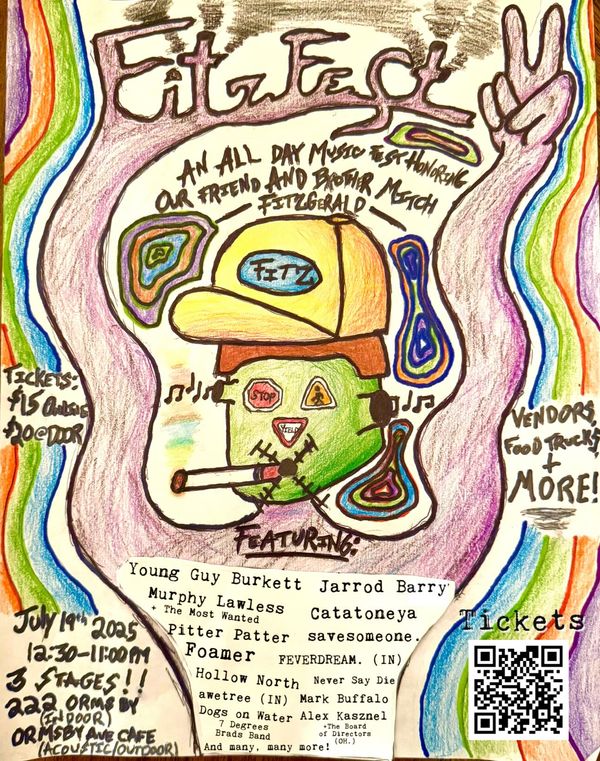 Fitz Fest
AN ALL DAY MUSIC FEST HONORING
OUR FRIEND AND BROTHER MITCH
FITZGERALD
FITZ
STOP
YIELD
TICKETS:
$15 ONLINE
$20 @ DOOR
VENDORS,
FOOD TRUCKS,
+
MORE!
FEATURING:
Young Guy Burkett Jarrod Barry
Murphy Lawless Catatoneya
+ The Most Wanted
Pitter Patter savesomeone.
Foamer FEVERDREAM. (IN)
Hollow North Never Say Die
awetree (IN) Mark Buffalo
Dogs on Water Alex Kasznel
7 Degrees +The Board
Brads Band of Directors
(OH.)
And many, many more!
July 19th 2025
12:30-11:00PM
3 STAGES!!
222 ORMSBY
(INDOOR)
ORMSBY AVE CAFE
(ACOUSTIC/OUTDOOR)
Tickets